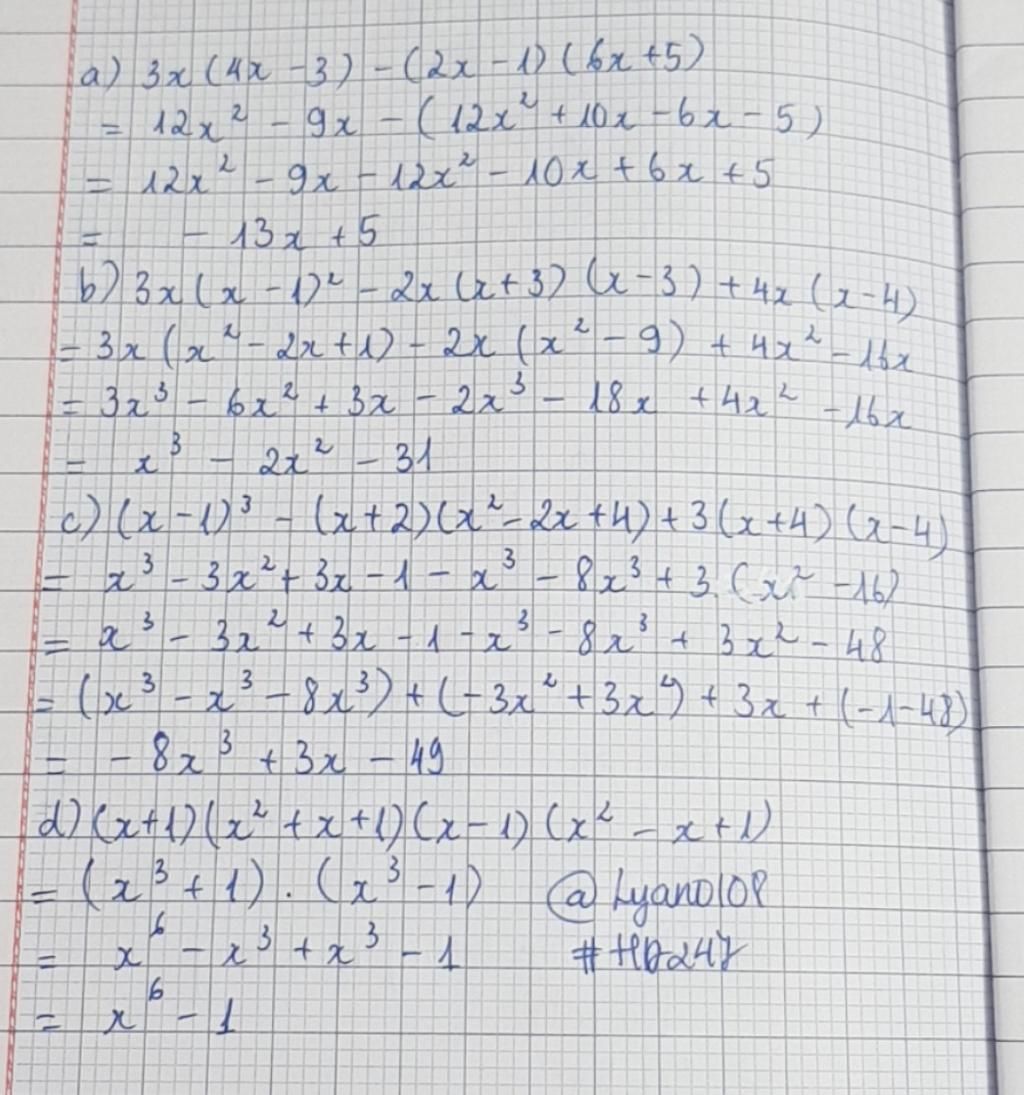 a) 3x(4x - 3) - (2x - 1)(6x + 5)
= 12x² - 9x - (12x² + 10x - 6x - 5)
= 12x² - 9x - 12x² - 10x + 6x + 5
= - 13x + 5
b) 3x(x - 1)² - 2x(x + 3)(x - 3) + 4x(x - 4)
= 3x(x² - 2x + 1) - 2x(x² - 9) + 4x² - 16x
= 3x³ - 6x² + 3x - 2x³ - 18x + 4x² - 16x
= x³ - 2x² - 31
c) (x - 1)³ - (x + 2)(x² - 2x + 4) + 3(x + 4)(x - 4)
= x³ - 3x² + 3x - 1 - x³ - 8x³ + 3(x² - 16)
= x³ - 3x² + 3x - 1 - x³ - 8x³ + 3x² - 48
= (x³ - x³ - 8x³) + (-3x² + 3x²) + 3x + (-1 - 48)
= - 8x³ + 3x - 49
d) (x + 1)(x² + x + 1)(x - 1)(x² - x + 1)
= (x³ + 1) . (x³ - 1) @Lyano108
= x⁶ - x³ + x³ - 1 #HD247
= x⁶ - 1